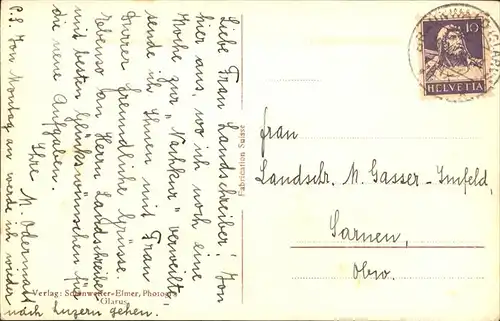 Liebe Frau Landschreiber! Von
hier aus, wo ich noch eine
Woche zur "Nachkur" verweilte,
sende ich Ihnen mit Frau
Durrer freundliche Grüsse.
Ebenso an Herrn Landschreiber
mit besten Glückswünschen für
die neue Aufgaben.
Ihre M. Odermatt
P.S. Von Montag an werde ich wieder
nach Luzern gehen.
Verlag: Schönwetter-Elmer, Photogr.
Glarus
Fabrication Suisse
10
HELVETIA
Frau
Landschr. M. Gasser-Imfeld,
Sarnen,
Obw.